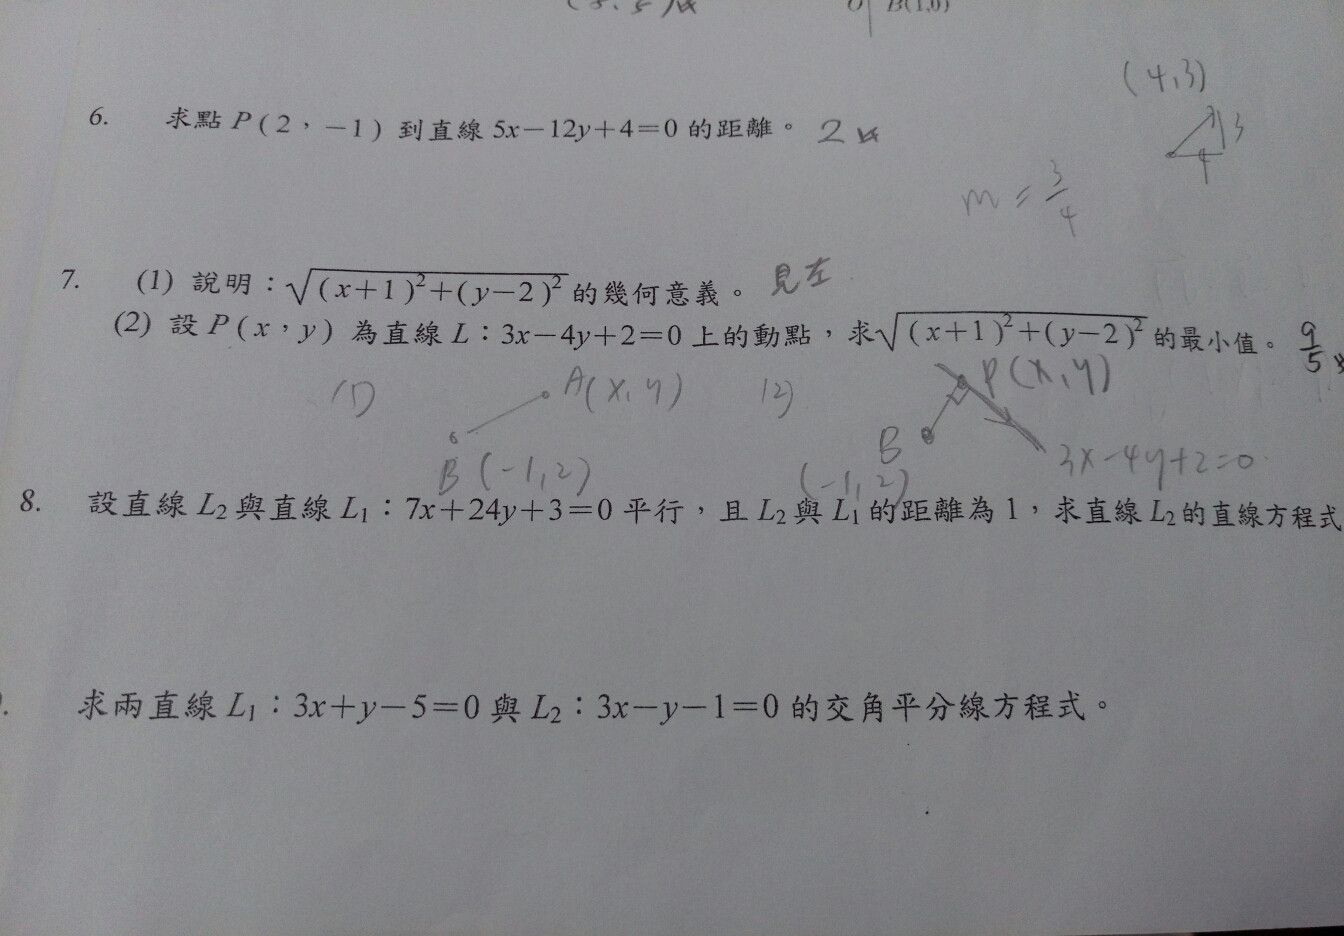 B(1,0)
(4,3)
6. 求點 P(2，−1) 到直線 5x−12y+4=0 的距離。 2
3
4
m = 3/4
7. (1) 說明：√((x+1)²+(y−2)²) 的幾何意義。 見左
(2) 設 P(x，y) 為直線 L：3x−4y+2=0 上的動點，求√((x+1)²+(y−2)²) 的最小值。 9/5
(1) A(x,y) (2) P(x,y)
B (-1,2) B (-1,2) 3x-4y+2=0
8. 設直線 L₂ 與直線 L₁：7x+24y+3=0 平行，且 L₂ 與 L₁ 的距離為 1，求直線 L₂ 的直線方程式
求兩直線 L₁：3x+y−5=0 與 L₂：3x−y−1=0 的交角平分線方程式。